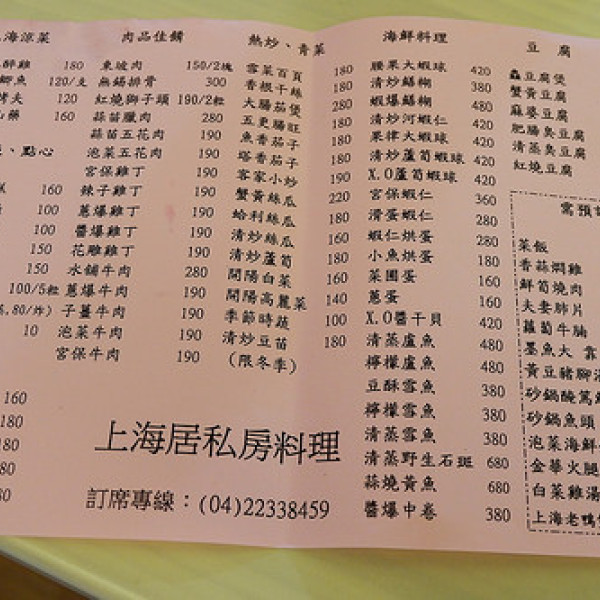 海涼菜
醉雞 180
鯽魚 120/支
烤夫 120
160
、點心
160
100
100
150
150
100/5粒
,80/炸)
10
160
180
180
180
80
肉品佳餚
東坡肉 150/2塊
無錫排骨 300
紅燒獅子頭 190/2粒
蒜苗臘肉 280
蒜苗五花肉 190
泡菜五花肉 190
宮保雞丁 190
辣子雞丁 190
蔥爆雞丁 190
醬爆雞丁 190
花雕雞丁 190
水鋪牛肉 280
蔥爆牛肉 190
子薑牛肉 190
泡菜牛肉 190
宮保牛肉 190
熱炒、青菜
雪菜百頁 180
香根干絲 180
大腸茄煲 280
五更腸旺 280
魚香茄子 180
塔香茄子 180
客家小炒 190
蟹黃絲瓜 220
蛤利絲瓜 190
清炒絲瓜 160
清炒蘆筍 180
開陽白菜 160
開陽高麗菜 140
季節時蔬 100
清炒豆苗 180
(限冬季)
海鮮料理
腰果大蝦球 420
清炒鱔糊 380
蝦爆鱔糊 480
清炒河蝦仁 480
果律大蝦球 420
清炒蘆筍蝦球 420
X.O蘆筍蝦球 420
宮保蝦仁 360
滑蛋蝦仁 280
蝦仁烘蛋 280
小魚烘蛋 180
菜圃蛋 160
蔥蛋 160
X.O醬干貝 420
清蒸鱸魚 480
檸檬鱸魚 480
豆酥雪魚 380
檸檬雪魚 380
清蒸雪魚 380
清蒸野生石斑 680
蒜燒黃魚 680
醬爆中卷 380
豆 腐
蟲豆腐煲
蟹黃豆腐
麻婆豆腐
肥腸臭豆腐
清蒸臭豆腐
紅燒豆腐
需預
菜飯
香蒜燜雞
鮮筍燒肉
夫妻肺片
蘿蔔牛腩
墨魚大
黃豆豬腳湯
砂鍋醃篤
砂鍋魚頭
泡菜海鮮
金華火腿
白菜雞湯
上海老鴨
上海居私房料理
訂席專線：(04)22338459